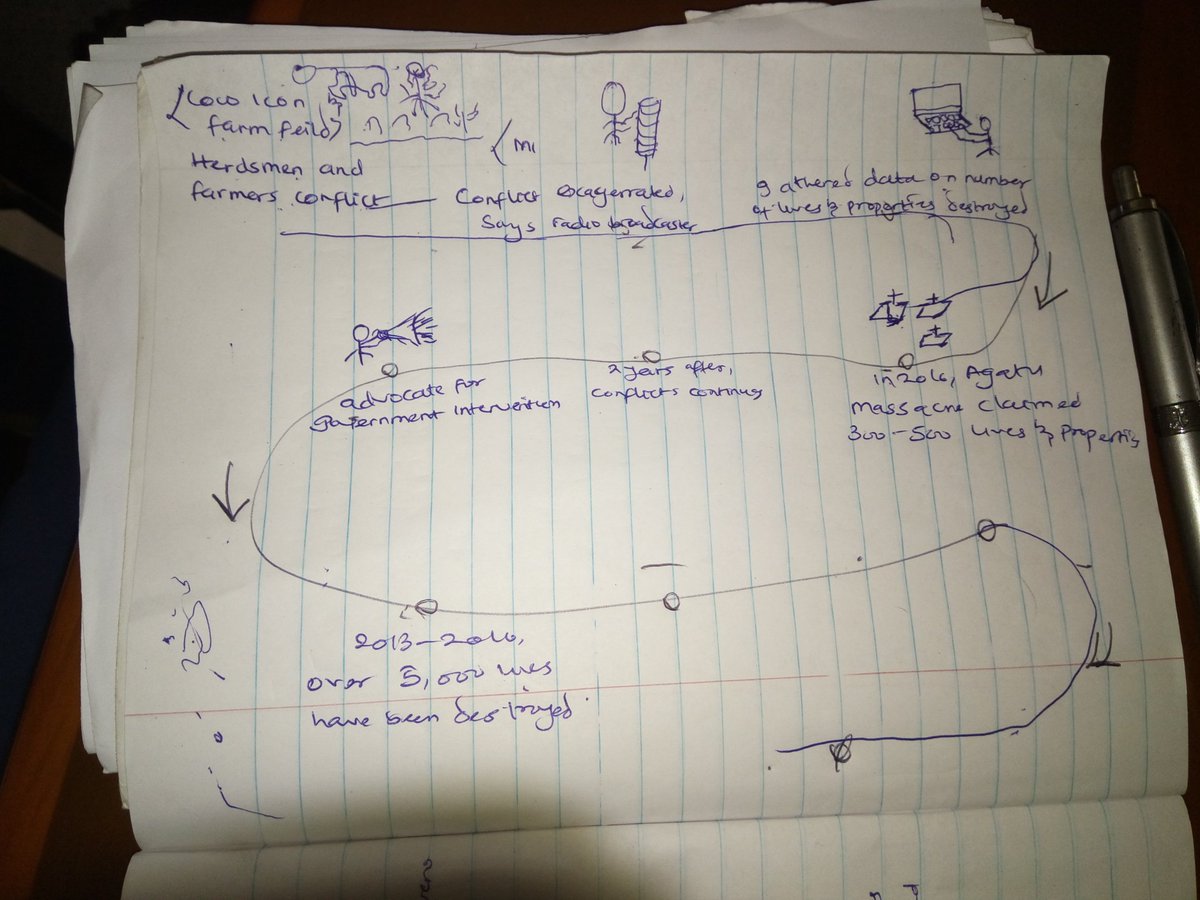 Cow icon
farm feild
Herdsmen and
farmers conflict
Conflict exagerrated,
Says radio broadcaster
gathered data on number
of lives & properties destroyed
in 2016, Agatu
massacre claimed
300-500 lives & properties
2 years after,
conflicts continues
advocate for
government intervention
2013-2016,
over 5,000 lives
have been destroyed